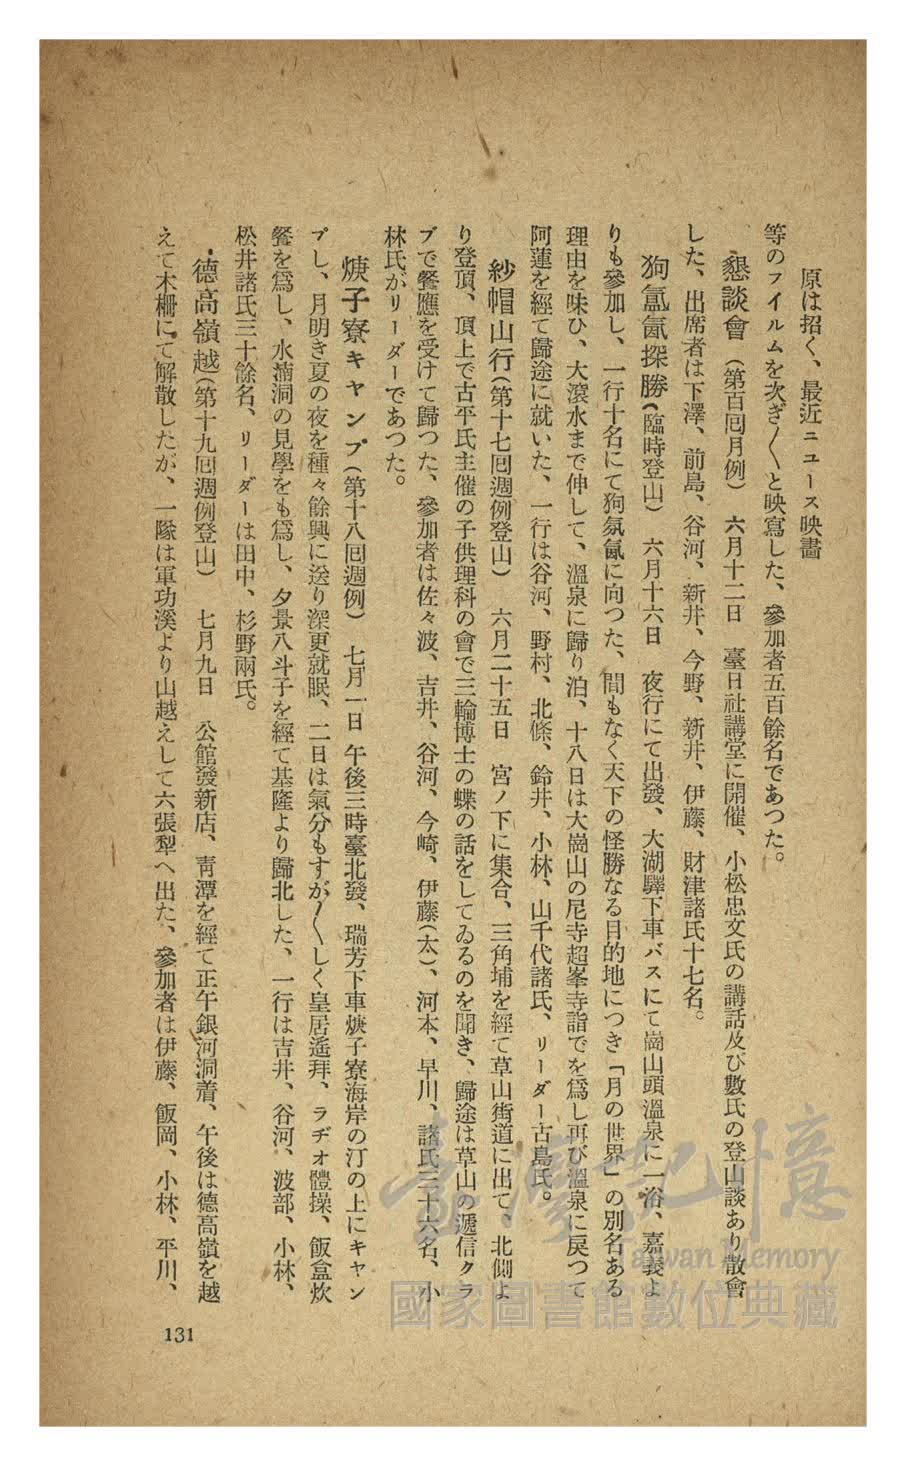 原は招く、最近ニュース映畫
等のフイルムを次ぎ〱と映寫した、參加者五百餘名であつた。
懇談會（第百囘月例）　六月十二日　臺日社講堂に開催、小松忠文氏の講話及び數氏の登山談あり散會
した、出席者は下澤、前島、谷河、新井、今野、新井、伊藤、財津諸氏十七名。
狗氳氤探勝（臨時登山）　六月十六日　夜行にて出發、大湖驛下車バスにて崗山頭溫泉に一浴、嘉義よ
りも參加し、一行十名にて狗氛氤に向つた、間もなく天下の怪勝なる目的地につき「月の世界」の別名ある
理由を味ひ、大滾水まで伸して、溫泉に歸り泊、十八日は大崗山の尼寺超峯寺詣でを爲し再び溫泉に戻つて
阿蓮を經て歸途に就いた、一行は谷河、野村、北條、鈴井、小林、山千代諸氏、リーダー古島氏。
紗帽山行（第十七囘週例登山）　六月二十五日　宮ノ下に集合、三角埔を經て草山街道に出て、北側よ
り登頂、頂上で古平氏主催の子供理科の會で三輪博士の蝶の話をしてゐるのを聞き、歸途は草山の遞信クラ
ブで餐應を受けて歸つた、參加者は佐々波、吉井、谷河、今崎、伊藤（太）、河本、早川、諸氏三十六名、小
林氏がリーダーであつた。
焿子寮キャンプ（第十八囘週例）　七月一日　午後三時臺北發、瑞芳下車焿子寮海岸の汀の上にキャン
プし、月明き夏の夜を種々餘興に送り深更就眠、二日は氣分もすが〱しく皇居遙拜、ラヂオ體操、飯盒炊
餐を爲し、水湳洞の見學をも爲し、夕景八斗子を經て基隆より歸北した、一行は吉井、谷河、波部、小林、
松井諸氏三十餘名、リーダーは田中、杉野兩氏。
德高嶺越（第十九囘週例登山）　七月九日　公館發新店、靑潭を經て正午銀河洞着、午後は德高嶺を越
えて木柵にて解散したが、一隊は軍功溪より山越えして六張犁へ出た、參加者は伊藤、飯岡、小林、平川、
131
臺灣記憶
Taiwan Memory
國家圖書館數位典藏